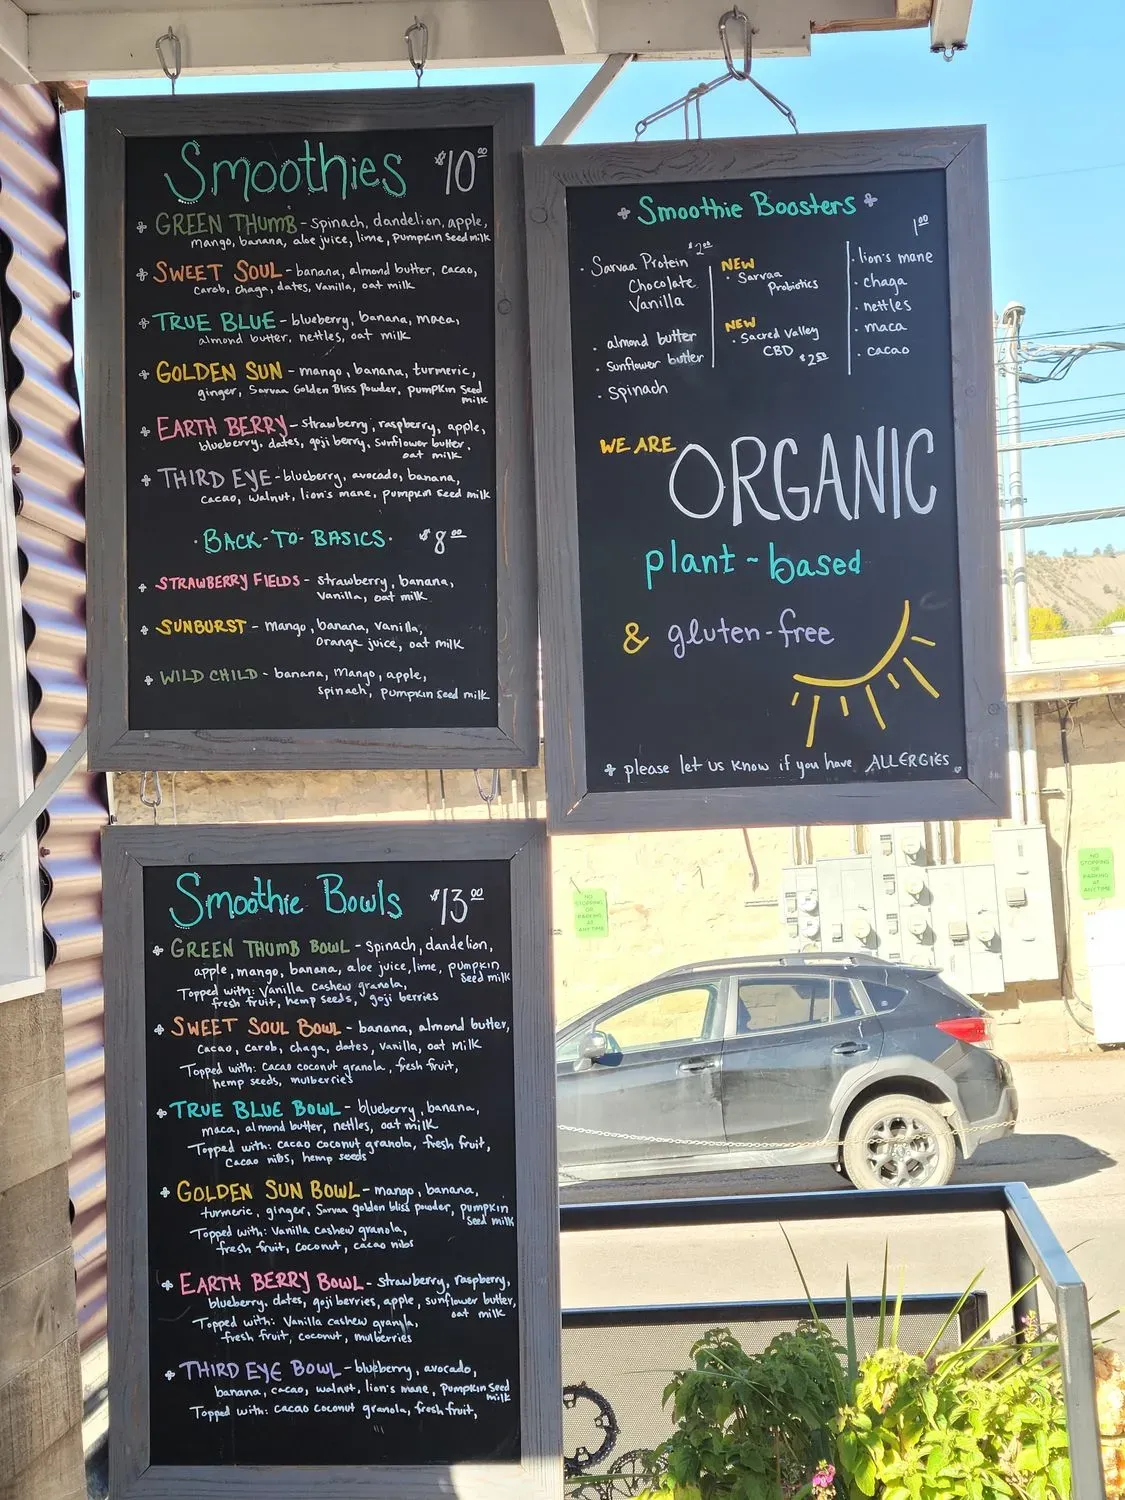 Smoothies $10.00
GREEN THUMB - spinach, dandelion, apple,
mango, banana, aloe juice, lime, pumpkin seed milk
SWEET SOUL - banana, almond butter, cacao,
carob, chaga, dates, vanilla, oat milk
TRUE BLUE - blueberry, banana, maca,
almond butter, nettles, oat milk
GOLDEN SUN - mango, banana, turmeric,
ginger, Sarvaa Golden Bliss Powder, pumpkin seed
milk
EARTH BERRY - strawberry, raspberry, apple,
blueberry, dates, goji berry, sunflower butter,
oat milk
THIRD EYE - blueberry, avocado, banana,
cacao, walnut, lion's mane, pumpkin seed milk
· BACK-TO-BASICS · $8.00
STRAWBERRY FIELDS - strawberry, banana,
vanilla, oat milk
SUNBURST - mango, banana, vanilla,
orange juice, oat milk
WILD CHILD - banana, mango, apple,
spinach, pumpkin seed milk
Smoothie Boosters
· Sarvaa Protein $2.00
Chocolate
Vanilla
· almond butter
· sunflower butter
· spinach
NEW
· Sarvaa
Probiotics
NEW
· Sacred Valley
CBD $2.50
1.00
· lion's mane
· chaga
· nettles
· maca
· cacao
WE ARE ORGANIC
plant-based
& gluten-free
please let us know if you have ALLERGIES
Smoothie Bowls $13.00
GREEN THUMB BOWL - spinach, dandelion,
apple, mango, banana, aloe juice, lime, pumpkin
seed milk
Topped with: Vanilla cashew granola,
fresh fruit, hemp seeds, goji berries
SWEET SOUL BOWL - banana, almond butter,
cacao, carob, chaga, dates, vanilla, oat milk
Topped with: Cacao coconut granola, fresh fruit,
hemp seeds, mulberries
TRUE BLUE BOWL - blueberry, banana,
maca, almond butter, nettles, oat milk
Topped with: cacao coconut granola, fresh fruit,
cacao nibs, hemp seeds
GOLDEN SUN BOWL - mango, banana,
turmeric, ginger, Sarvaa golden bliss powder, pumpkin
seed milk
Topped with: Vanilla cashew granola,
fresh fruit, coconut, cacao nibs
EARTH BERRY BOWL - strawberry, raspberry,
blueberry, dates, goji berries, apple, sunflower butter,
oat milk
Topped with: Vanilla cashew granola,
fresh fruit, coconut, mulberries
THIRD EYE BOWL - blueberry, avocado,
banana, cacao, walnut, lion's mane, pumpkin seed
milk
Topped with: cacao coconut granola, fresh fruit,
NO
STOPPING
OR
PARKING
AT
ANYTIME
NO
STOPPING
OR
PARKING
AT
ANYTIME